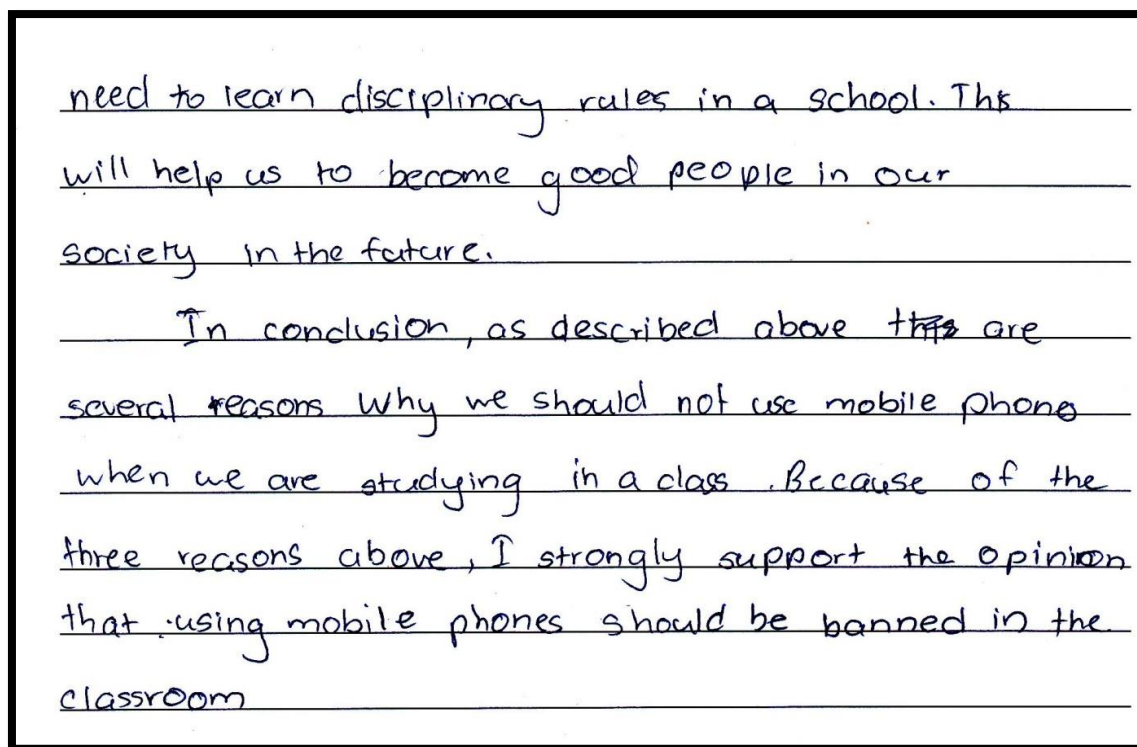 need to learn disciplinary rules in a school. This
will help us to become good people in our
society in the future.
In conclusion, as described above are
several reasons Why we should not use mobile phone
when we are studying in a class. Because of the
three reasons above, I strongly support the opinion
that using mobile phones should be banned in the
classroom